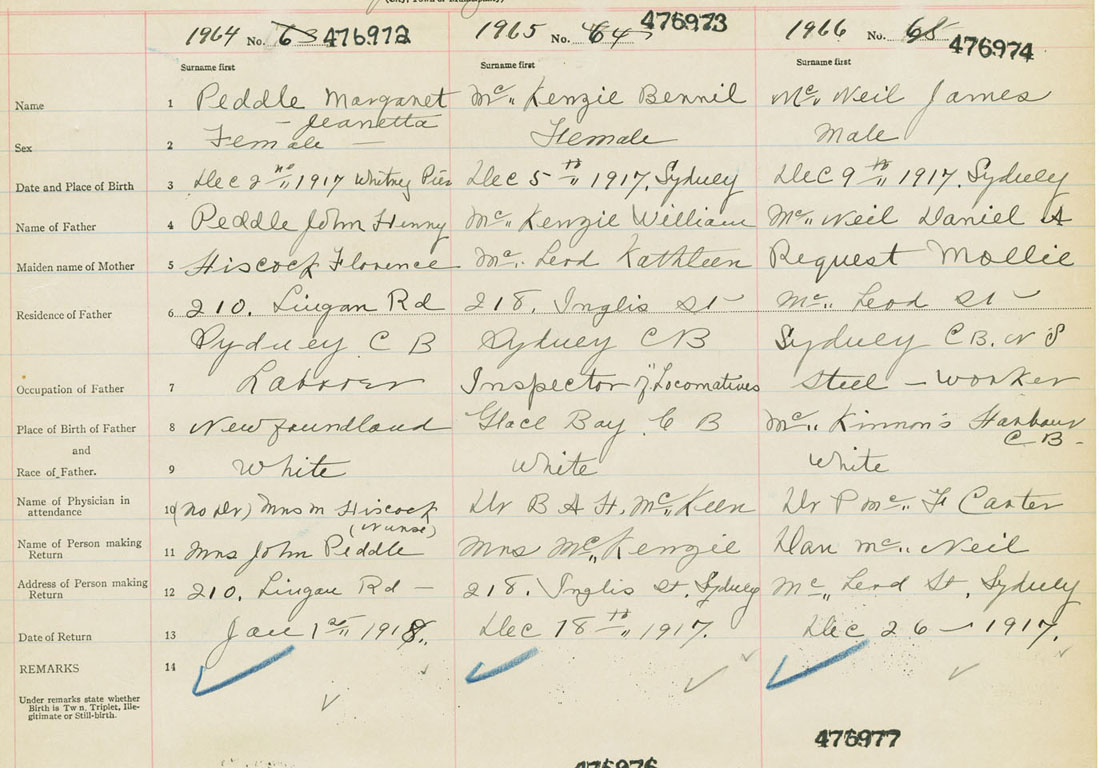 (City, Town or Municipality)
1964 No. 63 476972
1965 No. 64 476973
1966 No. 65 476974
Surname first Surname first Surname first
Name 1 Peddle Margaret Mc,, Kenzie Bennil Mc,, Neil James
Jeanetta
Sex 2 Female — Female Male
Date and Place of Birth 3 Dec 2nd,, 1917 Whitney Pier Dec 5th,, 1917, Sydney Dec 9th,, 1917, Sydney
Name of Father 4 Peddle John Henry Mc,, Kenzie William Mc,, Neil Daniel A
Maiden name of Mother 5 Hiscock Florence Mc,, Leod Kathleen Request Mollie
Residence of Father 6 210, Lingan Rd 218, Inglis St Mc,, Leod St
Sydney C B Sydney CB Sydney C B. N S
Occupation of Father 7 Laborer Inspector of Locomatives Steel - worker
Place of Birth of Father 8 Newfoundland Glace Bay, C B Mc,, Kinnon's Harbour
C B -
and
Race of Father. 9 White White White
Name of Physician in
attendance 10 (no Dr) Mrs M Hiscock Dr B A H. Mc,, Keen Dr P Mc,, F Carter
(Nurse)
Name of Person making
Return 11 Mrs John Peddle Mrs Mc,, Kenzie Dan Mc,, Neil
Address of Person making
Return 12 210, Lingan Rd — 218, Inglis St, Sydney Mc,, Leod St, Sydney
Date of Return 13 Jan 1st,, 1918. Dec 18th,, 1917. Dec 26 — 1917.
REMARKS 14
Under remarks state whether
Birth is Twin, Triplet, Ille-
gitimate or Still-birth.
476977
476976